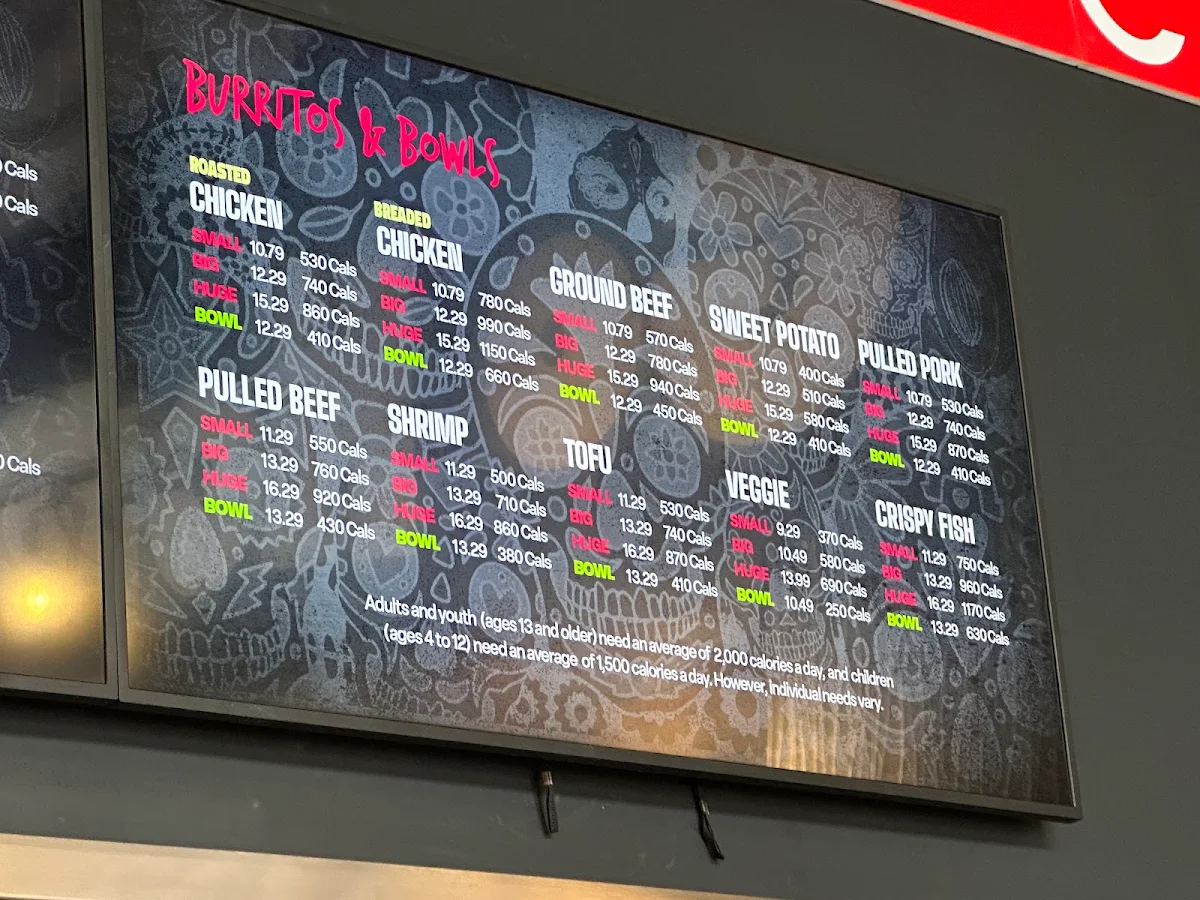 BURRITOS & BOWLS
ROASTED
CHICKEN
SMALL 10.79 530 Cals
BIG 12.29 740 Cals
HUGE 15.29 860 Cals
BOWL 12.29 410 Cals
BREADED
CHICKEN
SMALL 10.79 780 Cals
BIG 12.29 990 Cals
HUGE 15.29 1150 Cals
BOWL 12.29 660 Cals
GROUND BEEF
SMALL 10.79 570 Cals
BIG 12.29 780 Cals
HUGE 15.29 940 Cals
BOWL 12.29 450 Cals
SWEET POTATO
SMALL 10.79 400 Cals
BIG 12.29 510 Cals
HUGE 15.29 580 Cals
BOWL 12.29 410 Cals
PULLED PORK
SMALL 10.79 530 Cals
BIG 12.29 740 Cals
HUGE 15.29 870 Cals
BOWL 12.29 410 Cals
PULLED BEEF
SMALL 11.29 550 Cals
BIG 13.29 760 Cals
HUGE 16.29 920 Cals
BOWL 13.29 430 Cals
SHRIMP
SMALL 11.29 500 Cals
BIG 13.29 710 Cals
HUGE 16.29 860 Cals
BOWL 13.29 380 Cals
TOFU
SMALL 11.29 530 Cals
BIG 13.29 740 Cals
HUGE 16.29 870 Cals
BOWL 13.29 410 Cals
VEGGIE
SMALL 9.29 370 Cals
BIG 10.49 580 Cals
HUGE 13.99 690 Cals
BOWL 10.49 250 Cals
CRISPY FISH
SMALL 11.29 750 Cals
BIG 13.29 960 Cals
HUGE 16.29 1170 Cals
BOWL 13.29 630 Cals
Adults and youth (ages 13 and older) need an average of 2,000 calories a day, and children
(ages 4 to 12) need an average of 1,500 calories a day. However, individual needs vary.
Cals
Cals
0 Cals